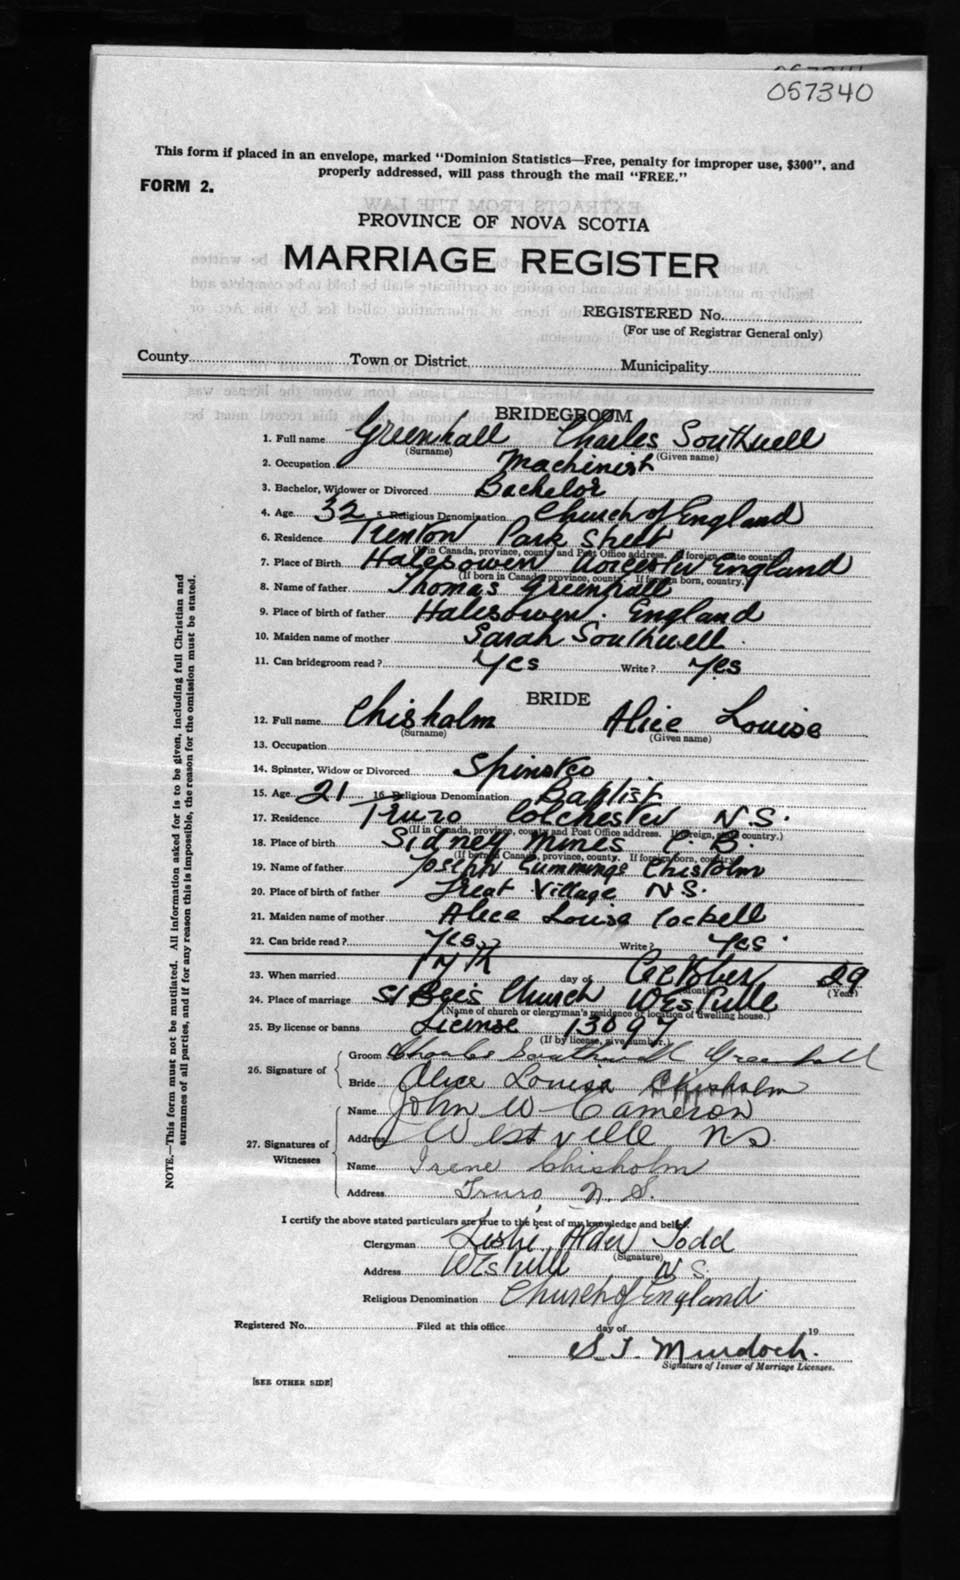 057340
This form if placed in an envelope, marked "Dominion Statistics—Free, penalty for improper use, $300", and
properly addressed, will pass through the mail "FREE."
FORM 2.
PROVINCE OF NOVA SCOTIA
MARRIAGE REGISTER
REGISTERED No.
(For use of Registrar General only)
County Town or District Municipality
BRIDEGROOM
1. Full name Greenhall Charles Southwell
(Surname) (Given name)
2. Occupation Machinist
3. Bachelor, Widower or Divorced Bachelor
4. Age 32 5 Religious Denomination Church of England
6. Residence Trenton Park Street
(If in Canada, province, county and Post Office address. If foreign, state country.)
7. Place of Birth Halesowen Worcester England
(If born in Canada, province, county. If foreign born, country.)
8. Name of father Thomas Greenhall
9. Place of birth of father Halesowen. England
10. Maiden name of mother Sarah Southwell
11. Can bridegroom read? Yes Write? Yes
BRIDE
12. Full name Chisholm Alice Louise
(Surname) (Given name)
13. Occupation
14. Spinster, Widow or Divorced Spinster
15. Age 21 16 Religious Denomination Baptist
17. Residence Truro Colchester N.S.
(If in Canada, province, county and Post Office address. If foreign, country.)
18. Place of birth Sidney Mines C. B.
(If born in Canada, province, county. If foreign born, country.)
19. Name of father Joseph Cummings Chisholm
20. Place of birth of father Great Village N.S.
21. Maiden name of mother Alice Louisa Cockell
22. Can bride read? Yes Write? Yes
23. When married day of October 29
(Month) (Year)
24. Place of marriage St Bees Church Westville
(Name of church or clergyman's residence or location of dwelling house.)
25. By license or banns License 13097
(If by license, give number.)
26. Signature of
Groom Charles Southwell Greenhall
Bride Alice Louisa Chisholm
27. Signatures of Witnesses
Name John W Cameron
Address Westville N.S.
Name Irene Chisholm
Address Truro, N. S.
I certify the above stated particulars are true to the best of my knowledge and belief.
Clergyman Leslie Alder Todd
(Signature)
Address Westville N.S.
Religious Denomination Church of England
Registered No. Filed at this office day of 19
S. T. Murdoch.
Signature of Issuer of Marriage Licenses.
[SEE OTHER SIDE]
NOTE.—This form must not be mutilated. All information asked for is to be given, including full Christian and
surnames of all parties, and if for any reason this is impossible, the reason for the omission must be stated.